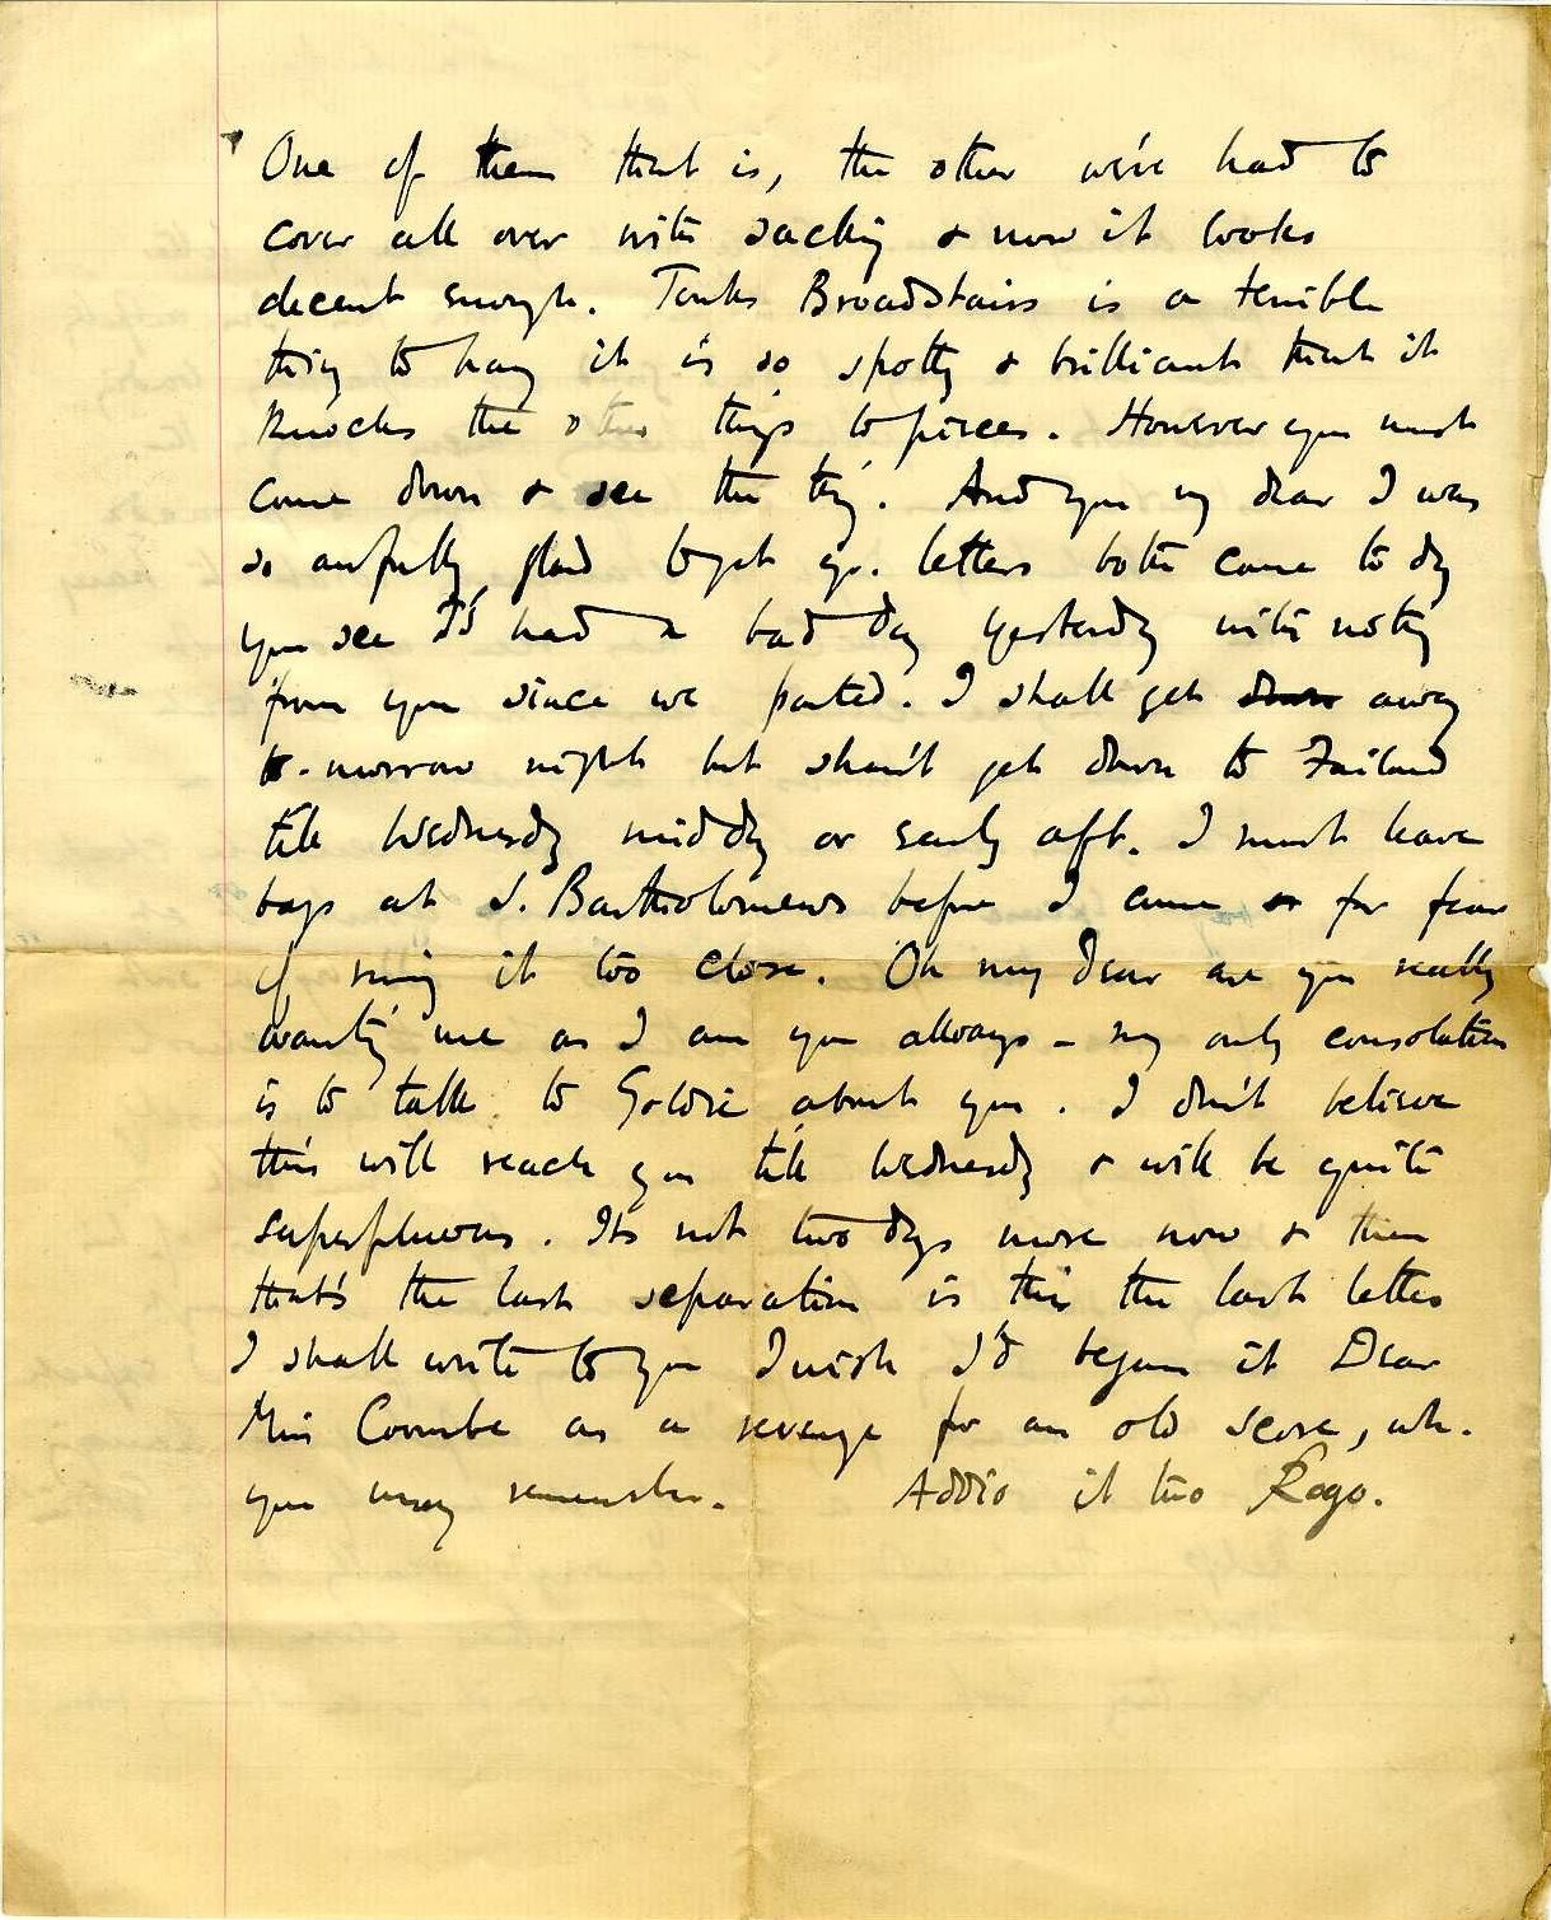 One of them that is, the other we've had to
cover all over with sacking & now it looks
decent enough. Tonks Broadstairs is a terrible
thing to hang it is so spotty & brilliant that it
knocks the other things to pieces. However you must
come down & see the thing. And you my dear I was
so awfully glad to get yr. letters both came to day
you see I'd had a bad day yesterday with nothing
from you since we parted. I shall get down away
to-morrow night but shan't get down to Failand
till Wednesday midday or early aft. I must leave
bags at S. Bartholomews before I come or for fear
of running it too close. Oh my dear are you really
wanting me as I am you always - my only consolation
is to talk to Goldie about you. I don't believe
this will reach you till Wednesday & will be quite
superfluous. Its not two days more now & then
that's the last separation is this the last letter
I shall write to you I wish I'd begun it Dear
Miss Coombe as a revenge for an old score, wh.
you may remember. Addio il tuo Rogo.